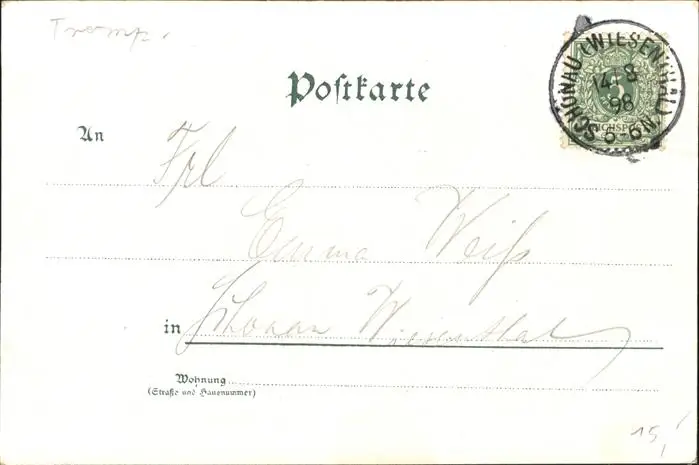 Tromp.
SCHÖNAU (WIESENTHAL)
14 8
98
5-6N
5
REICHSPOST
Postkarte
An
Frl
Emma Weiß
in Schönau Wiesenthal
Wohnung
(Straße und Hausnummer)
15,